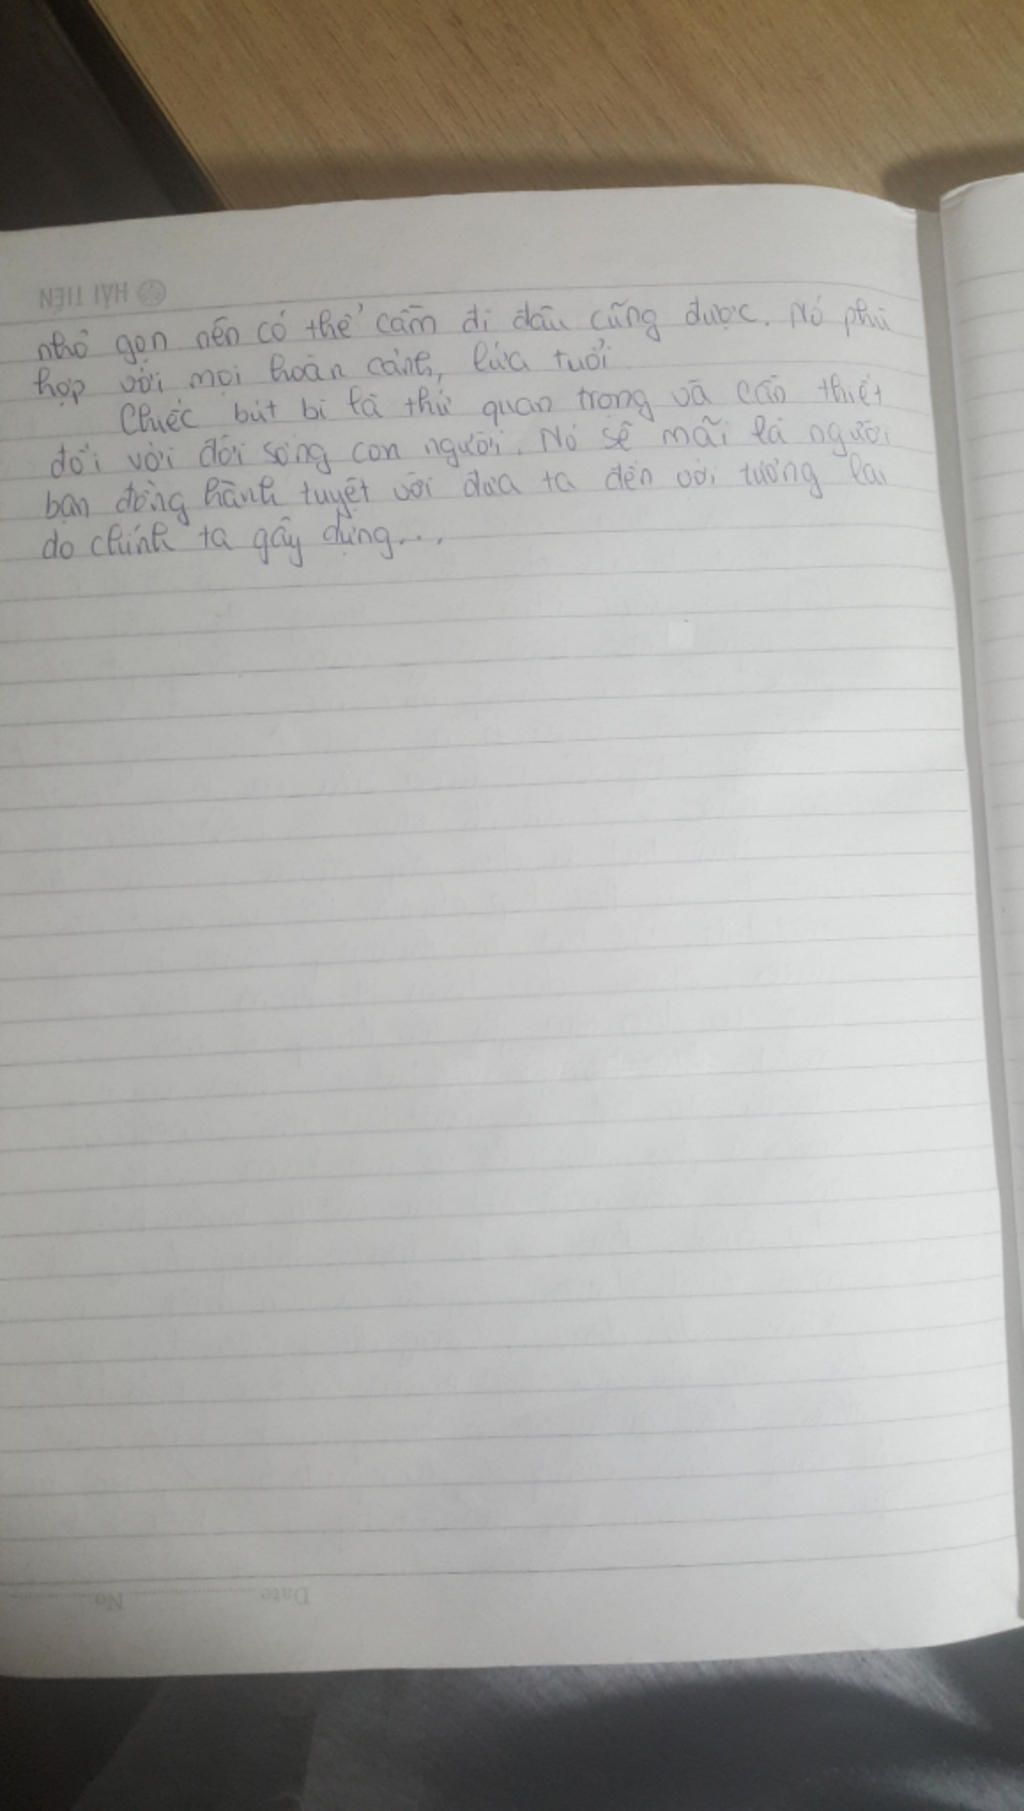 HẢI TIẾN
nhỏ gọn nên có thể cầm đi đâu cũng được. Nó phù
hợp với mọi hoàn cảnh, lứa tuổi.
Chiếc bút bi là thứ quan trọng và cần thiết
đối với đời sống con người. Nó sẽ mãi là người
bạn đồng hành tuyệt vời đưa ta đến với tương lai
do chính ta gây dựng...
No Date